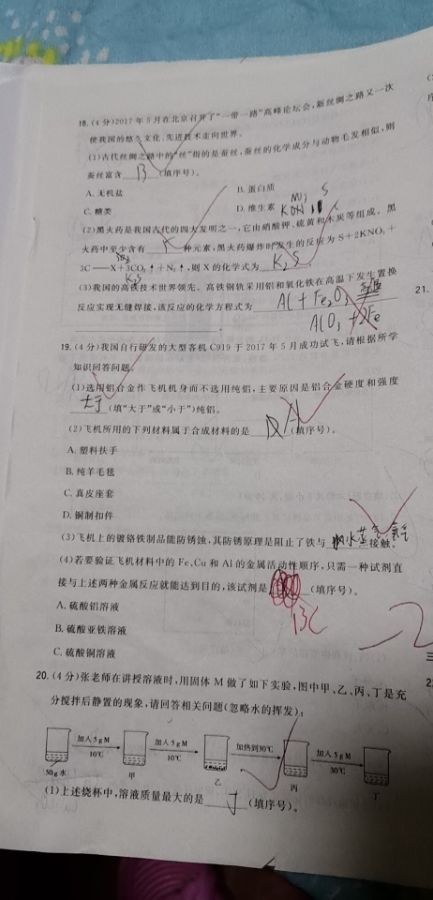 18.(4分)2017年5月在北京召开了“一带一路”高峰论坛会,新丝绸之路又一次
使我国的悠久文化、先进技术走向世界。
(1)古代丝绸之路中的“丝”指的是蚕丝,蚕丝的化学成分与动物毛发相似,则
蚕丝富含 B (填序号)。
A.无机盐 B.蛋白质
C.糖类 D.维生素
(2)黑火药是我国古代的四大发明之一,它由硝酸钾、硫黄和木炭等组成。黑
火药中至少含有 K 种元素,黑火药爆炸时发生的反应为S+2KNO₃+
3C——X+3CO₂↑+N₂↑,则X的化学式为 K₂S
(3)我国的高铁技术世界领先。高铁钢轨采用铝和氧化铁在高温下发生置换
反应实现无缝焊接,该反应的化学方程式为 Al+Fe₂O₃ 高温
AlO₃+2Fe 。
19.(4分)我国自行研发的大型客机C919于2017年5月成功试飞,请根据所学
知识回答问题。
(1)选用铝合金作飞机机身而不选用纯铝,主要原因是铝合金硬度和强度
大于 (填“大于”或“小于”)纯铝。
(2)飞机所用的下列材料属于合成材料的是 A (填序号)。
A.塑料扶手
B.纯羊毛毯
C.真皮座套
D.铜制扣件
(3)飞机上的镀铬铁制品能防锈蚀,其防锈原理是阻止了铁与 水蒸气 氧气 接触。
(4)若要验证飞机材料中的Fe、Cu和Al的金属活动性顺序,只需一种试剂直
接与上述两种金属反应就能达到目的,该试剂是 (填序号)。
BC
A.硫酸铝溶液
B.硫酸亚铁溶液
C.硫酸铜溶液
-2
20.(4分)张老师在讲授溶液时,用固体M做了如下实验,图中甲、乙、丙、丁是充
分搅拌后静置的现象,请回答相关问题(忽略水的挥发):
加入5gM 加入5gM 加热到30℃ 加入5gM
10℃ 10℃ 30℃
50g水 甲 乙 丙 丁
(1)上述烧杯中,溶液质量最大的是 丁 (填序号)。
21.